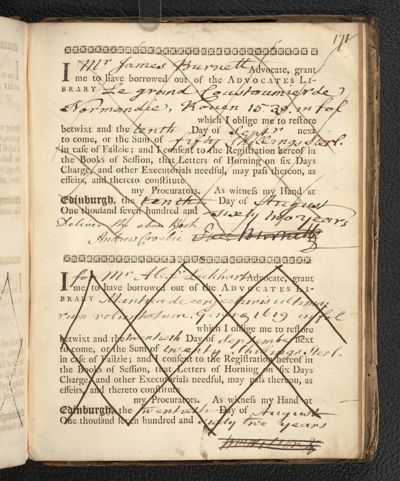 171
I Mr James Burnett Advocate, grant
me to have borrowed out of the ADVOCATES LI-
BRARY Le grand Coustoumier de
Normandie, Rouen 1539. in fol
which I oblige me to restore
betwixt and the tenth Day of Septr next
to come, or the Sum of fifty shillings Sterl.
in case of Failzie; and I consent to the Registration hereof in
the Books of Session, that Letters of Horning on six Days
Charge, and other Executorials needful, may pass thereon, as
effeirs, and thereto constitute
my Procurators. As witness my Hand at
Edinburgh, the tenth Day of August
One thousand seven hundred and sixty two years
Deliver the above Book
Andrew Crosbie Ja. Burnett
I for Mr Alexr Lockhart Advocate, grant
me to have borrowed out of the ADVOCATES LI-
BRARY Mantica de conjecturis ultima-
rum voluntatum. Genev. 1619 in fol
which I oblige me to restore
betwixt and the twentieth Day of September next
to come, or the Sum of twenty shillings Sterl.
in case of Failzie; and I consent to the Registration hereof in
the Books of Session, that Letters of Horning on six Days
Charge, and other Executorials needful, may pass thereon, as
effeirs, and thereto constitute
my Procurators. As witness my Hand at
Edinburgh, the twentieth Day of August
One thousand seven hundred and sixty two years